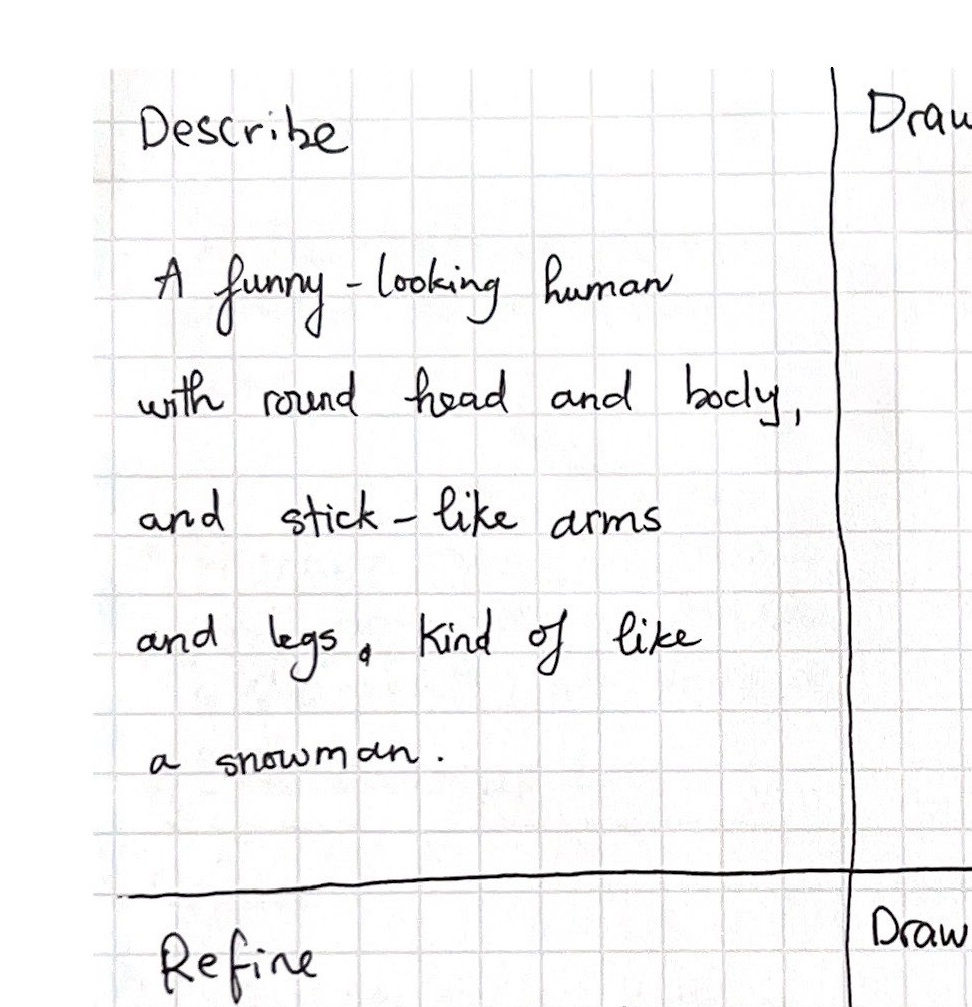 Describe
A funny-looking human
with round head and body,
and stick-like arms
and legs, kind of like
a snowman.
Draw
Refine
Draw